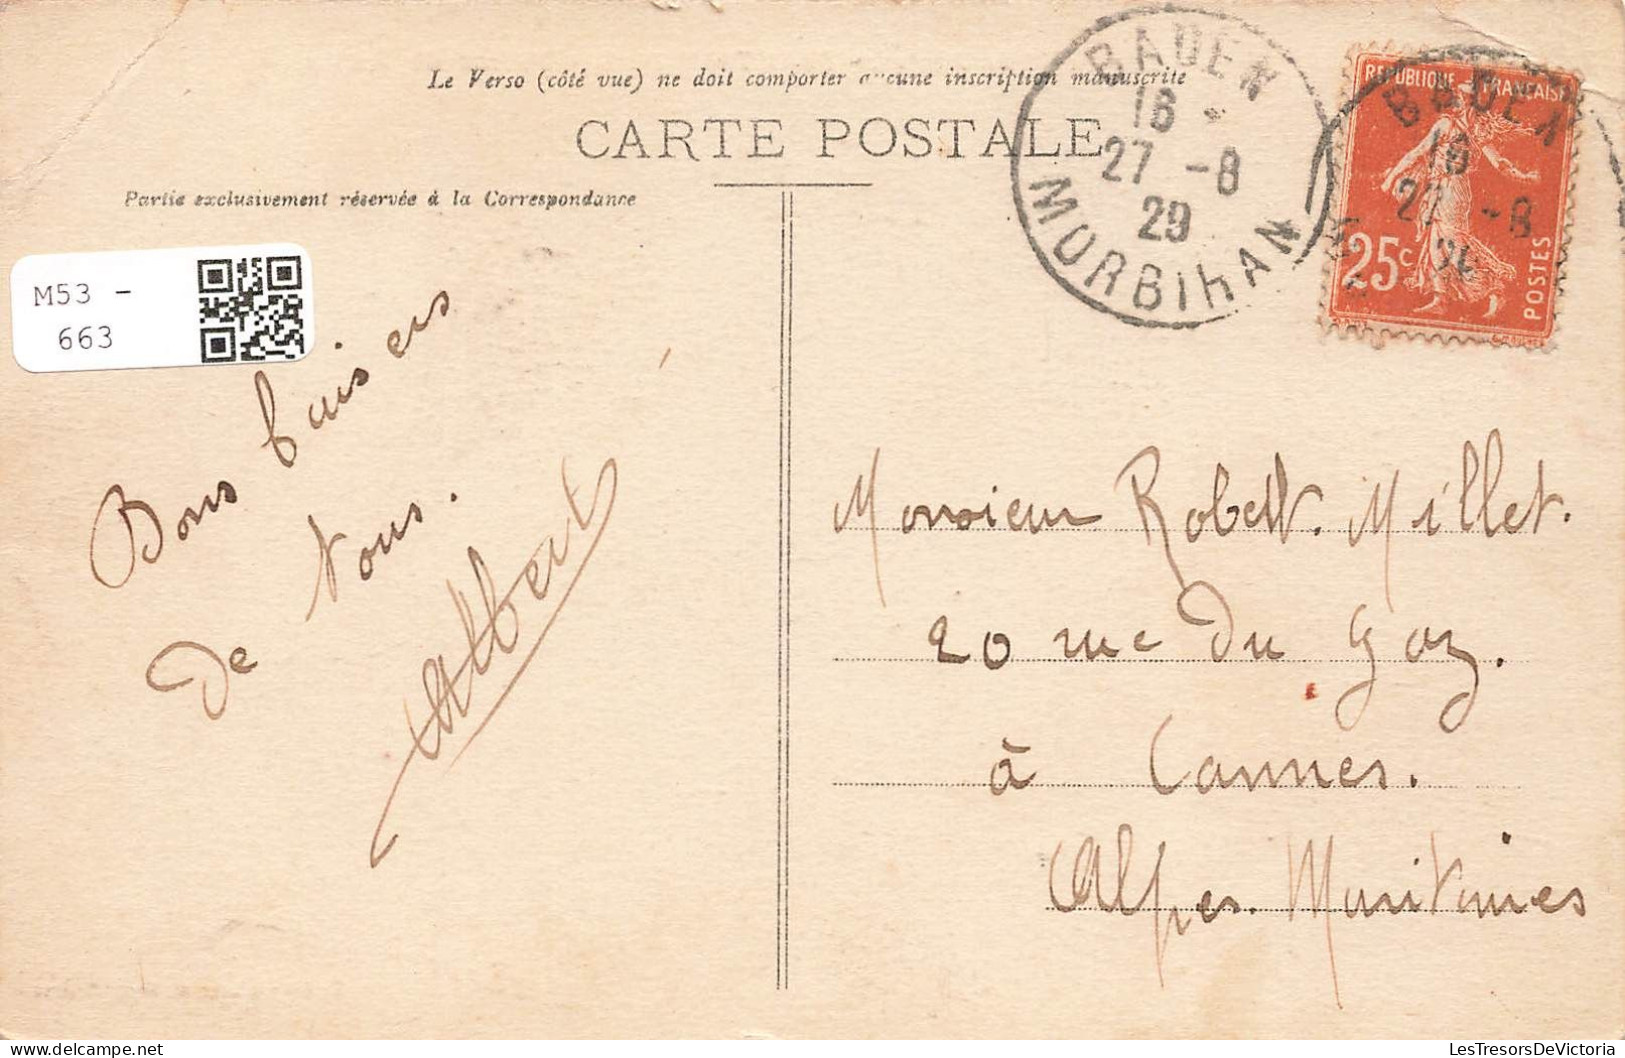 Le Verso (côté vue) ne doit comporter aucune inscription manuscrite
CARTE POSTALE
Partie exclusivement réservée à la Correspondance
BADEN
16 *
27 -8
29
MORBIHAN
REPUBLIQUE FRANÇAISE
BADEN
16
27 -8
25c
POSTES
M53 -
663
Bons baisers
de tous.
Albert
Monsieur Robert. Millet.
20 rue du Gaz.
à Cannes.
Alpes. Maritimes
LesTresorsDeVictoria